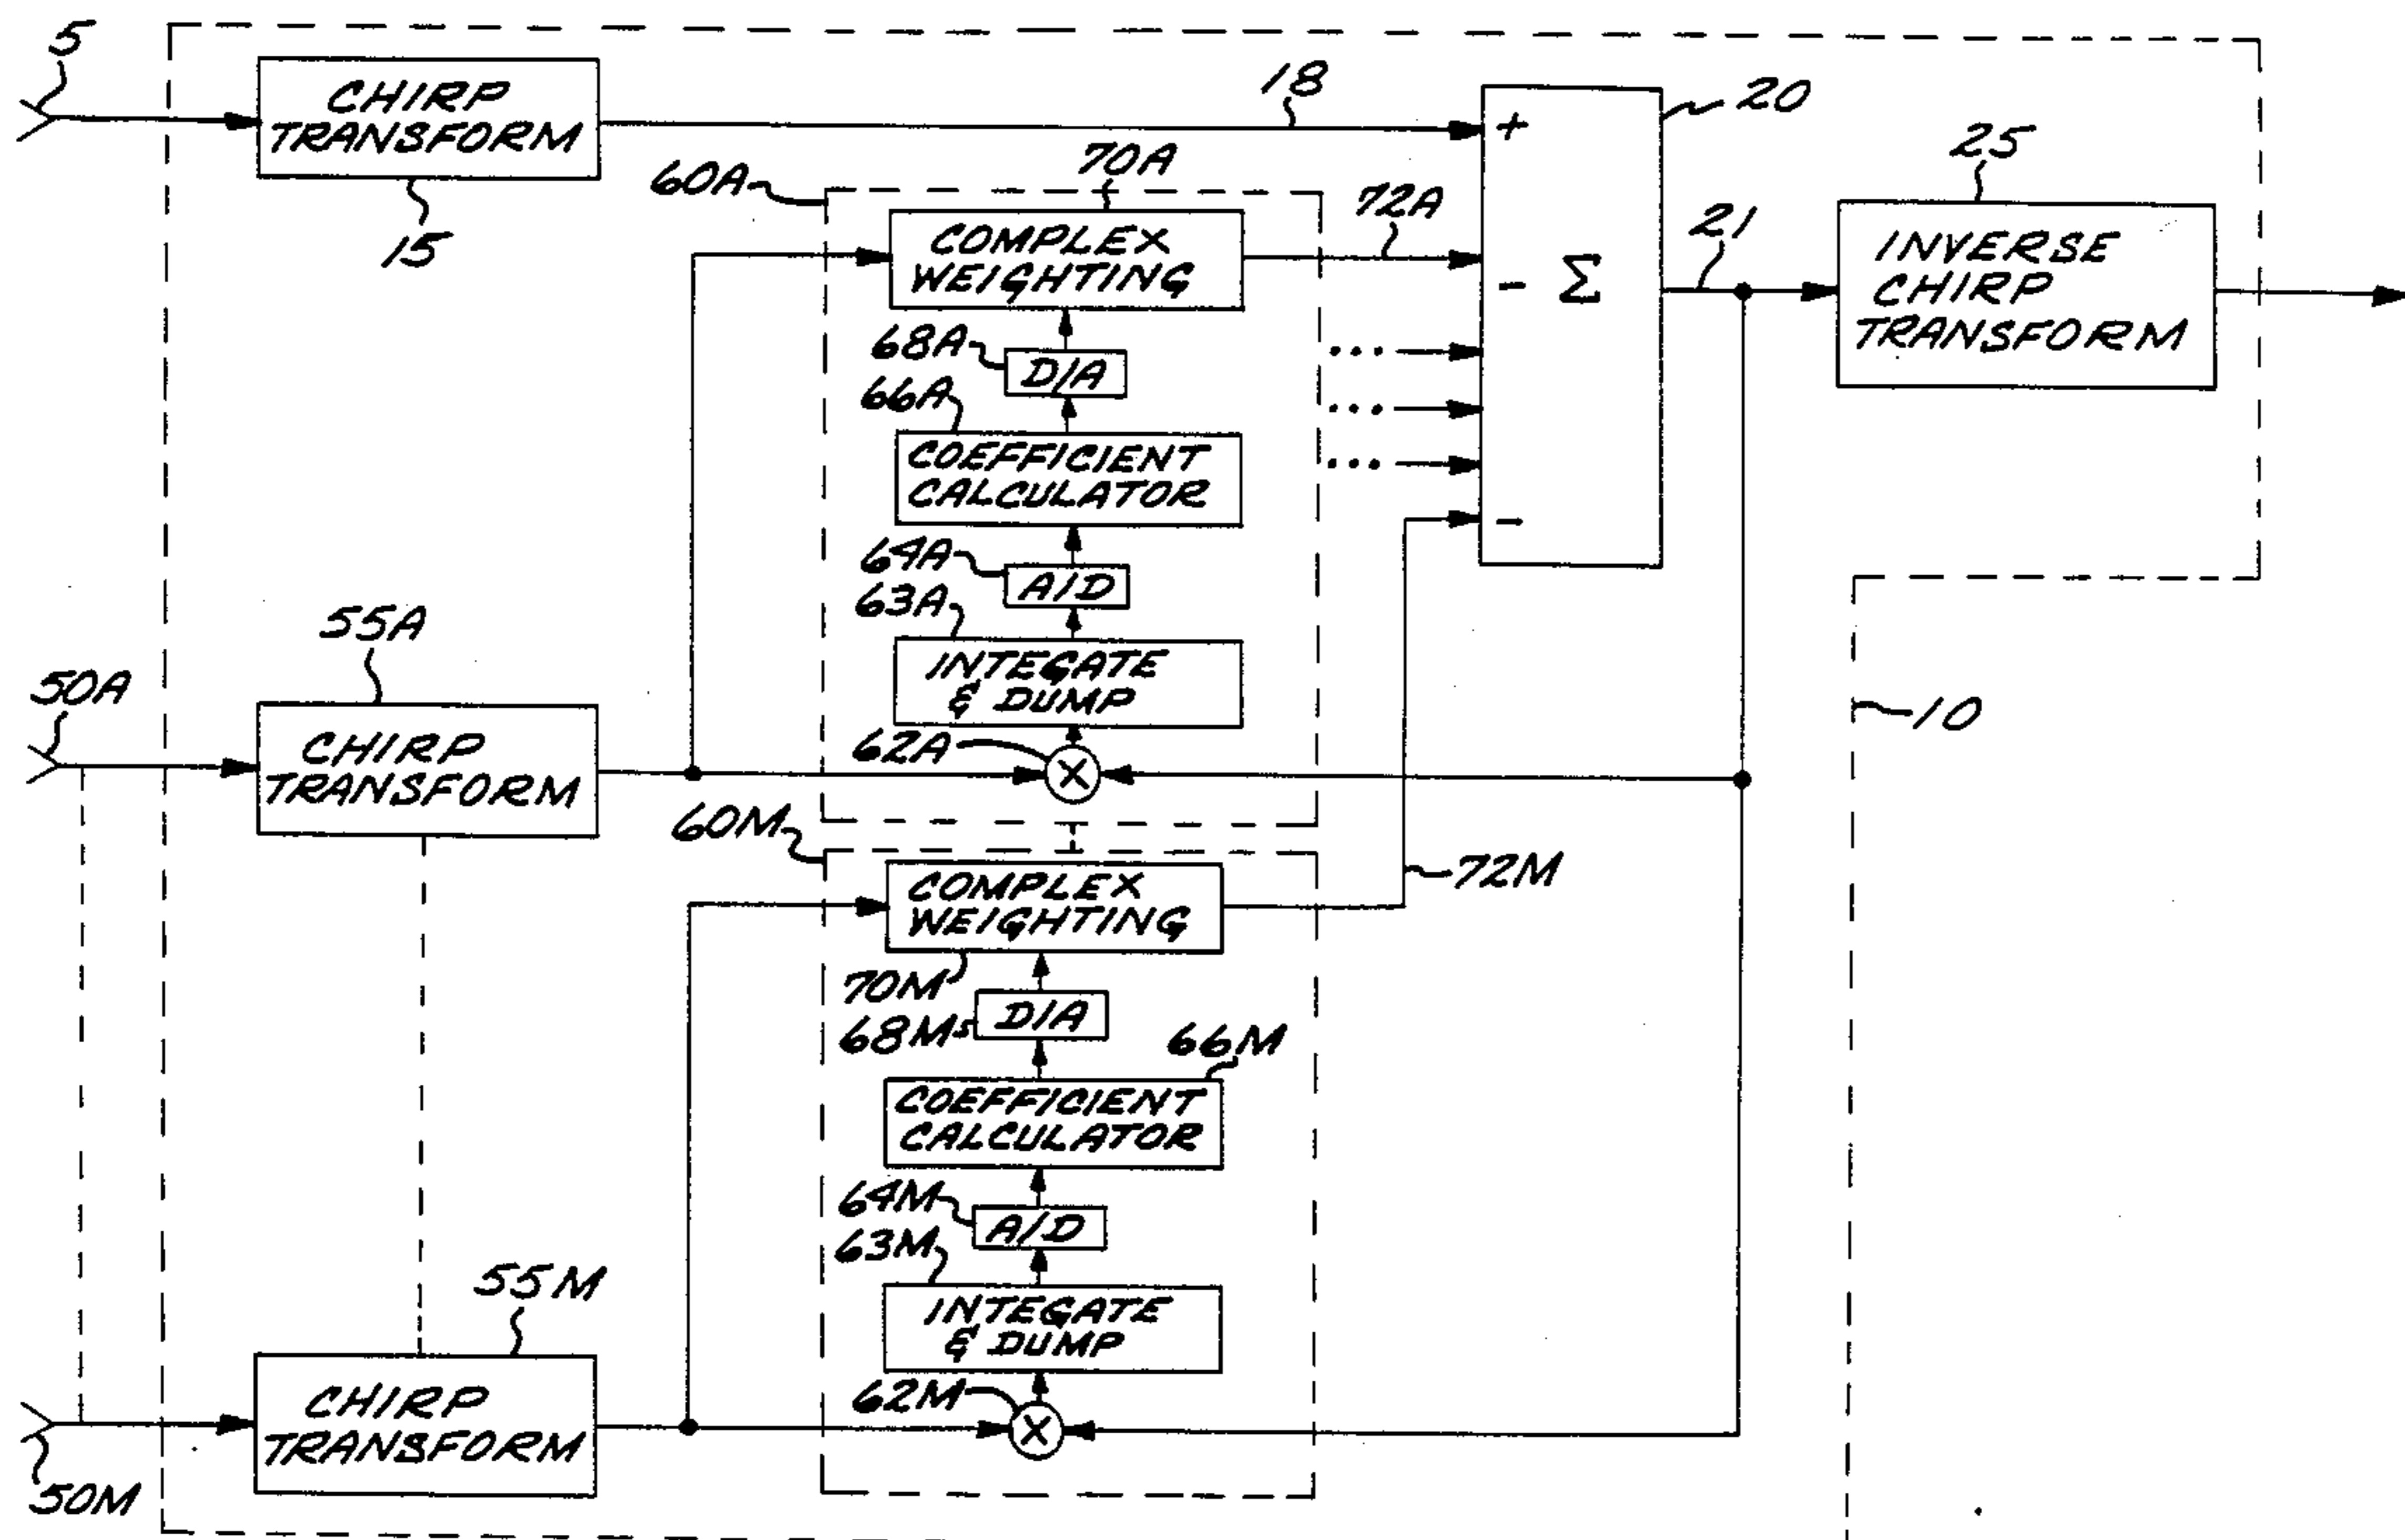 5
CHIRP
TRANSFORM
15
18
20
+
-
Σ
-
21
25
INVERSE
CHIRP
TRANSFORM
60A
70A
COMPLEX
WEIGHTING
72A
68A
D/A
...
66A
...
COEFFICIENT
CALCULATOR
...
64A
A/D
63A
INTEGATE
& DUMP
62A
X
10
50A
55A
CHIRP
TRANSFORM
60M
COMPLEX
WEIGHTING
72M
70M
68M
D/A
66M
COEFFICIENT
CALCULATOR
64M
A/D
63M
INTEGATE
& DUMP
62M
X
55M
CHIRP
TRANSFORM
50M